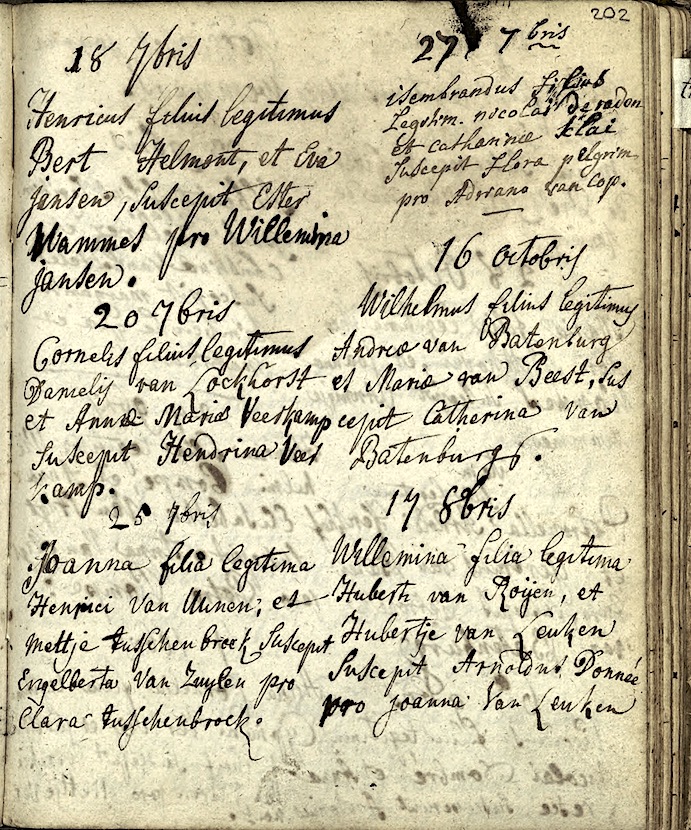 202
18 7bris
Henricus filius legitimus
Bert Helmont, et Eva
Jansen, Suscepit Ester
Wammes pro Willemina
Jansen.
20 7bris
Cornelis filius legitimus
Danielis van Lockhorst
et Annæ Mariæ Veerkamp
Suscepit Hendrina Veer
kamp.
25 7bris
Joanna filia legitima
Henrici Van Uunen, et
Mettje tusschenbroek Suscepit
Engelberta Van Zuylen pro
Clara tusschenbroek.
27 7bris
isembrandus filius
Legitim. nicolai de radon
et catharinæ klai
Suscepit Flora pelgrim
pro Adriano van Cop.
16 octobris
Wilhelmus filius legitimus
Andreæ van Batenburg
et Mariæ van Beest, Sus
cepit Catherina van
Batenburg.
17 8bris
Willemina filia legitima
Huberti van Roijen, et
Hubertje van Leuken
Suscepit Arnoldus Donnée
pro Joanna Van Leuken